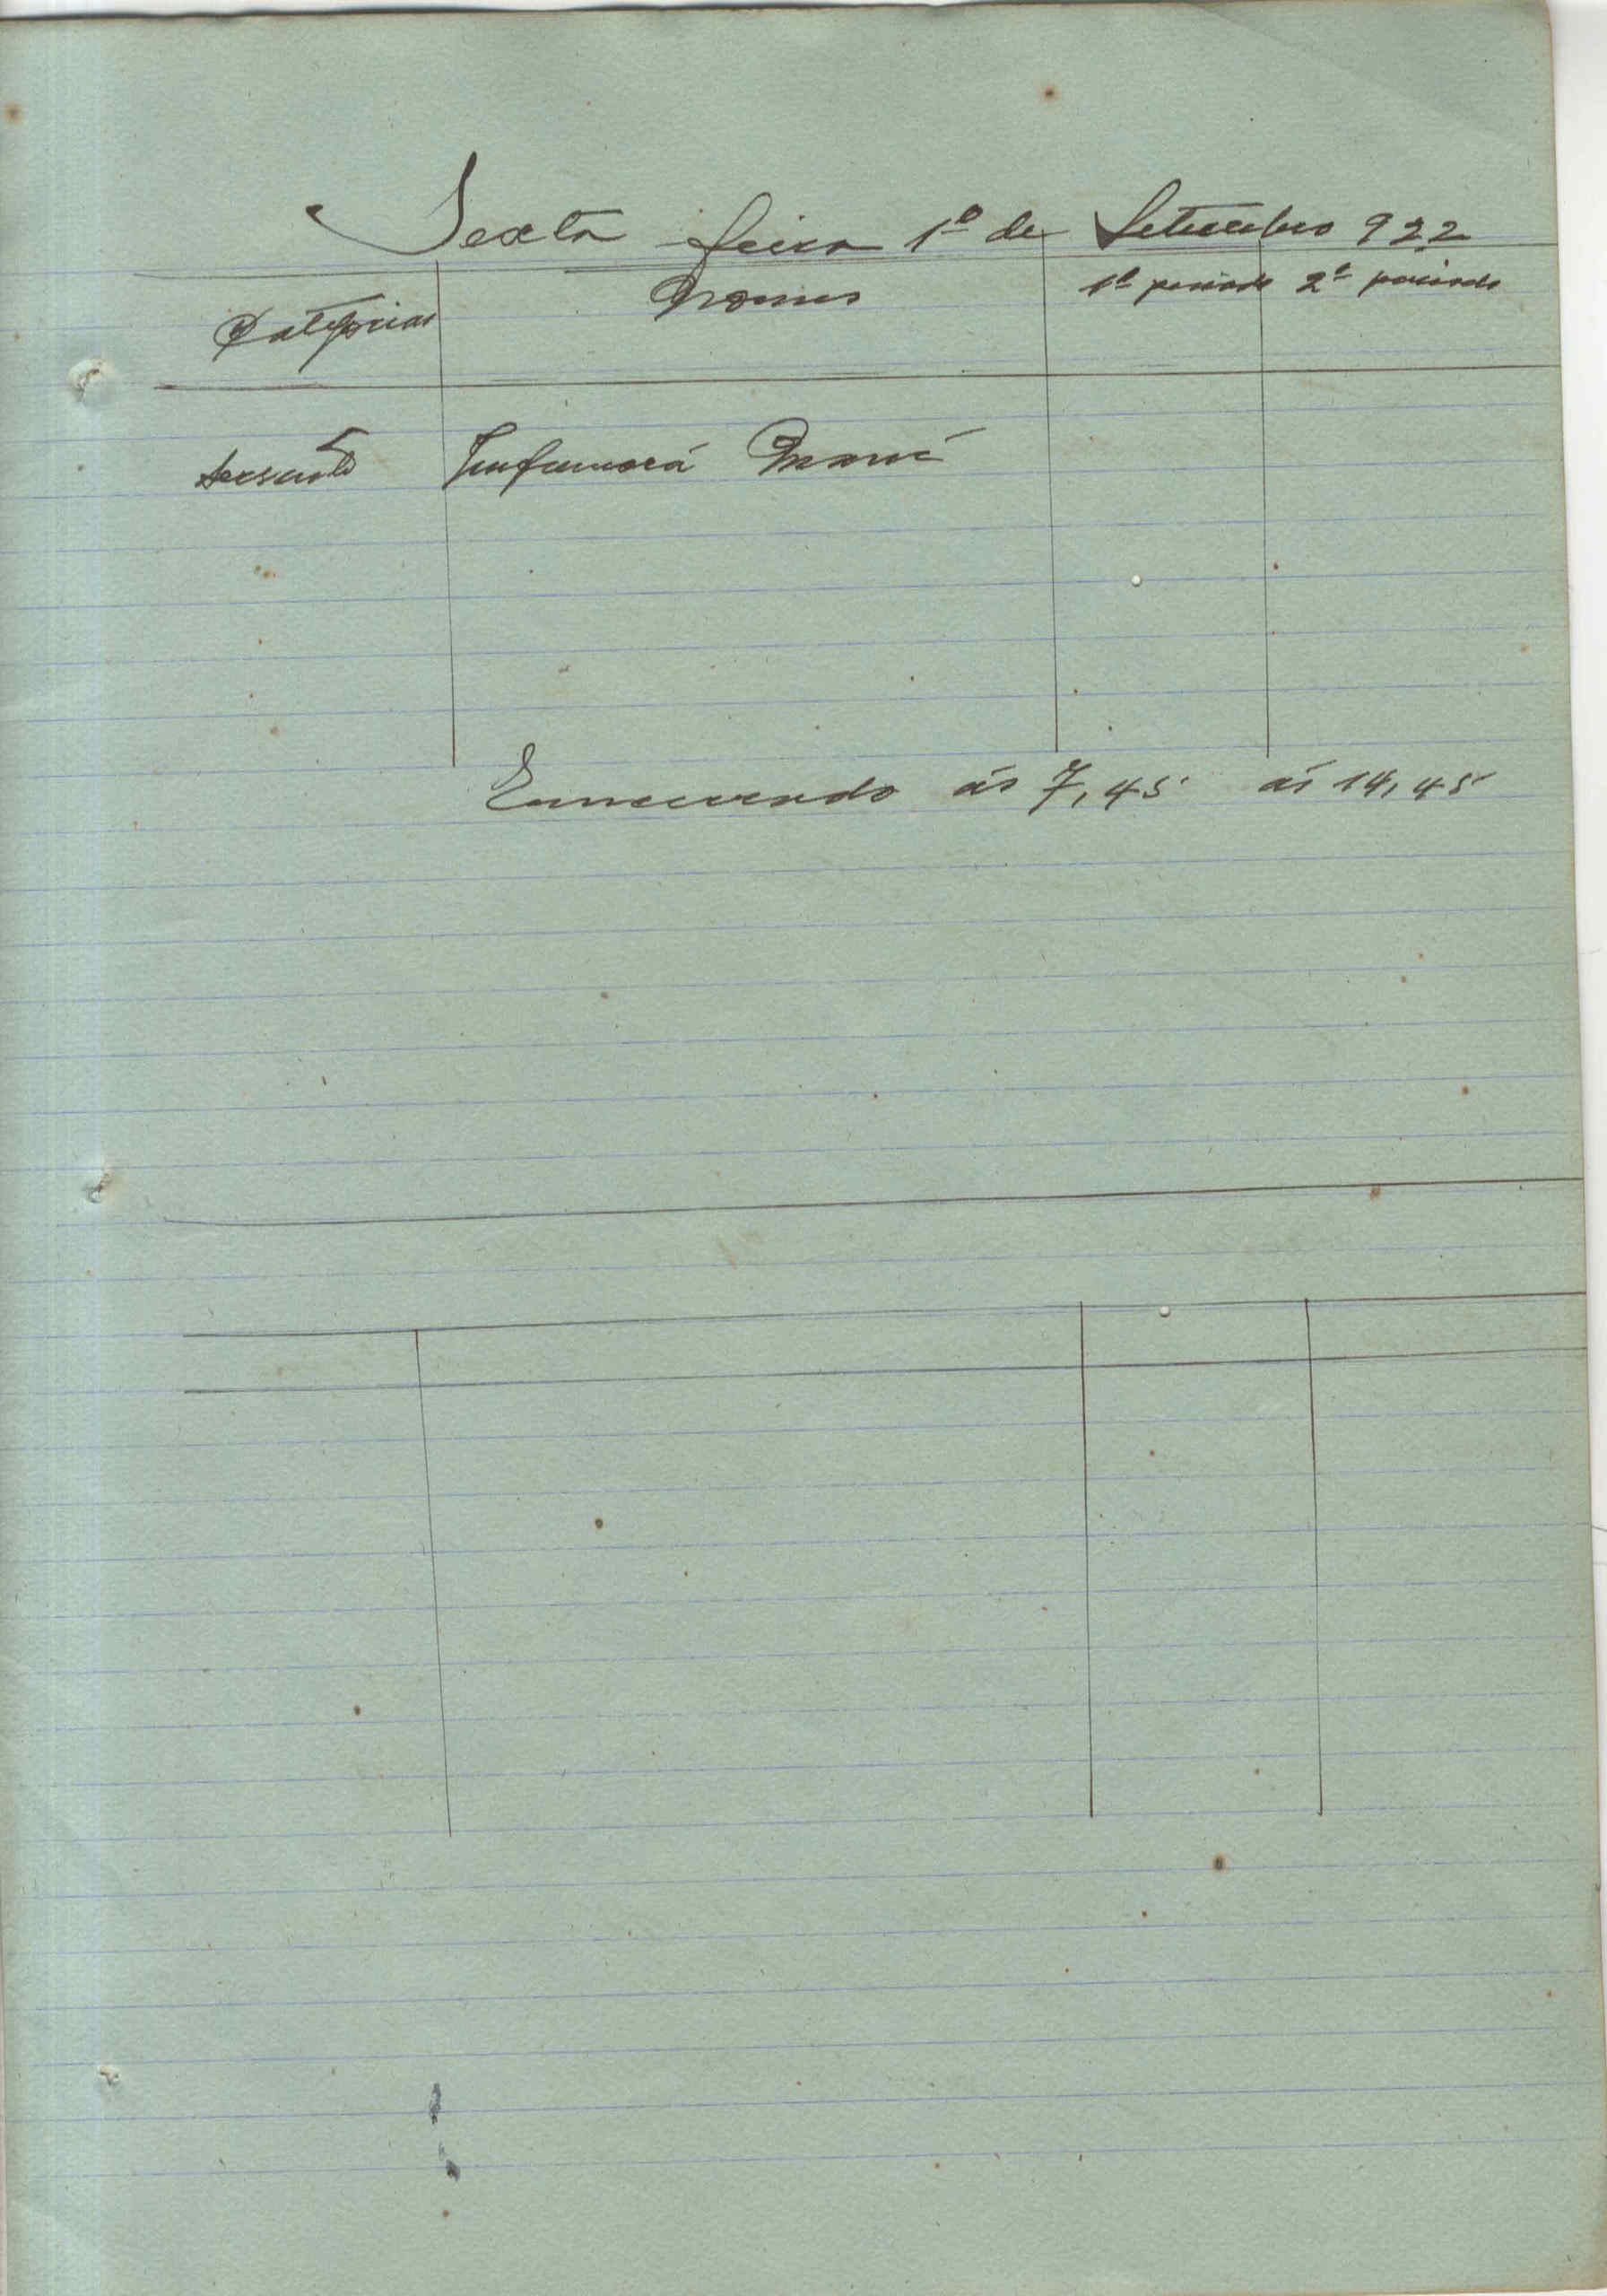 Sexta feira 1º de Setembro 922
Categorias Nomes 1º periodo 2º periodo
Servente
ás 7,45 ás 14,45